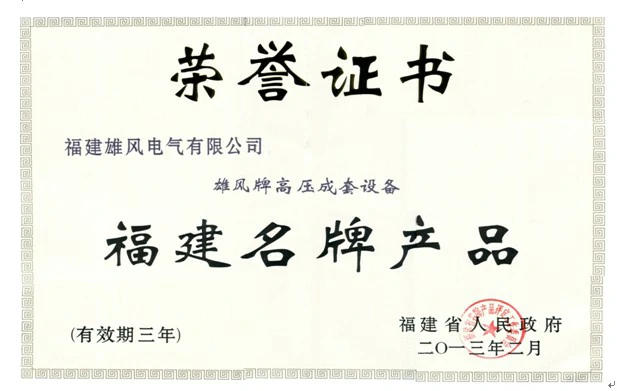 荣誉证书
福建雄风电气有限公司
雄风牌高压成套设备
福建名牌产品
(有效期三年)
福建省人民政府
二〇一三年二月